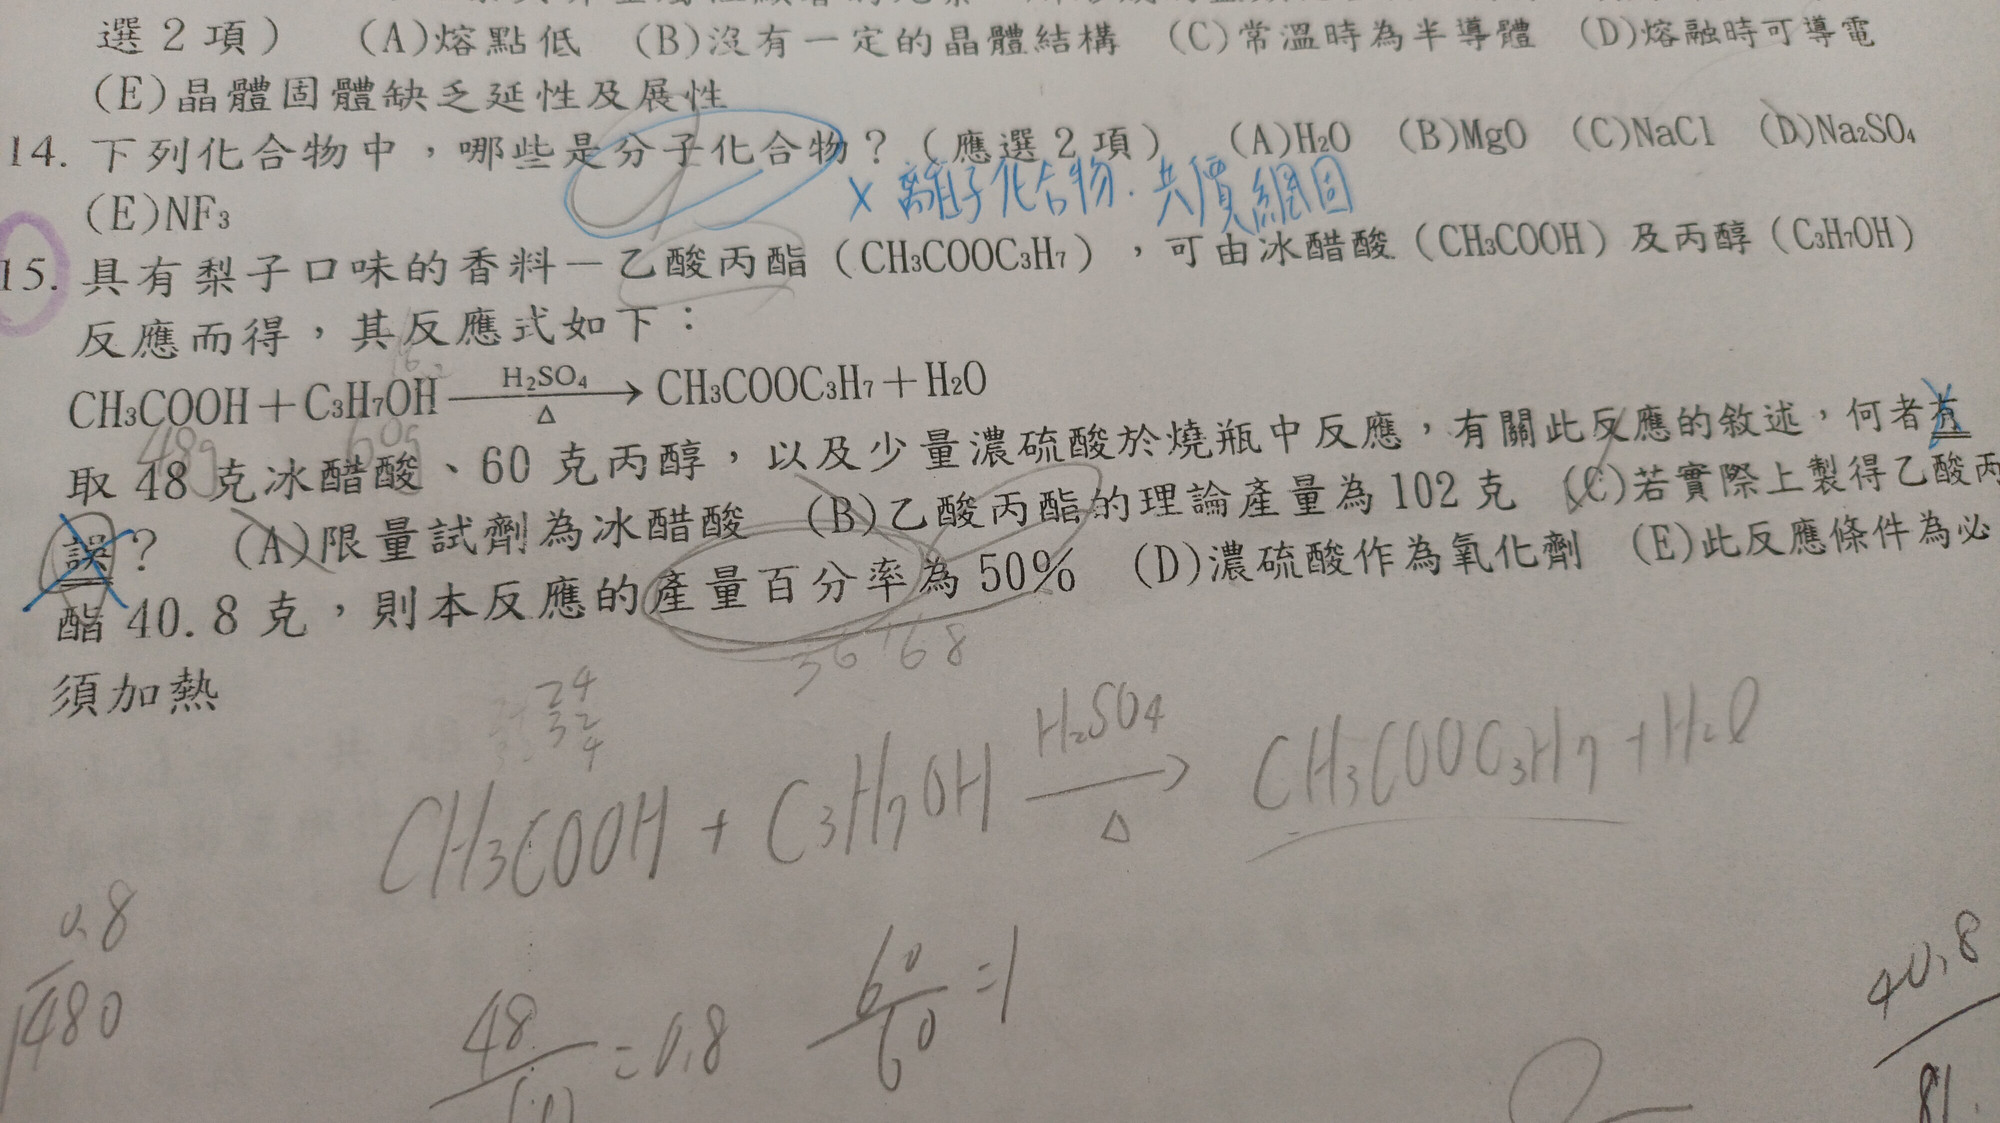 選2項） (A)熔點低 (B)沒有一定的晶體結構 (C)常溫時為半導體 (D)熔融時可導電
(E)晶體固體缺乏延性及展性
14. 下列化合物中，哪些是分子化合物？（應選2項） (A)H₂O (B)MgO (C)NaCl (D)Na₂SO₄
x 離子化合物．共價網固
(E)NF₃
15. 具有梨子口味的香料－乙酸丙酯（CH₃COOC₃H₇），可由冰醋酸（CH₃COOH）及丙醇（C₃H₇OH）
反應而得，其反應式如下：
CH₃COOH＋C₃H₇OH H₂SO₄ Δ → CH₃COOC₃H₇＋H₂O
48g 60g
取48克冰醋酸、60克丙醇，以及少量濃硫酸於燒瓶中反應，有關此反應的敘述，何者有
誤？ (A)限量試劑為冰醋酸 (B)乙酸丙酯的理論產量為102克 (C)若實際上製得乙酸丙
酯40.8克，則本反應的產量百分率為50% (D)濃硫酸作為氧化劑 (E)此反應條件為必
須加熱
36 16 8
24
32
4
CH₃COOH + C₃H₇OH H₂SO₄ Δ → CH₃COOC₃H₇ + H₂O
0.8
480
48 = 0.8
60/60 = 1
40.8
81.